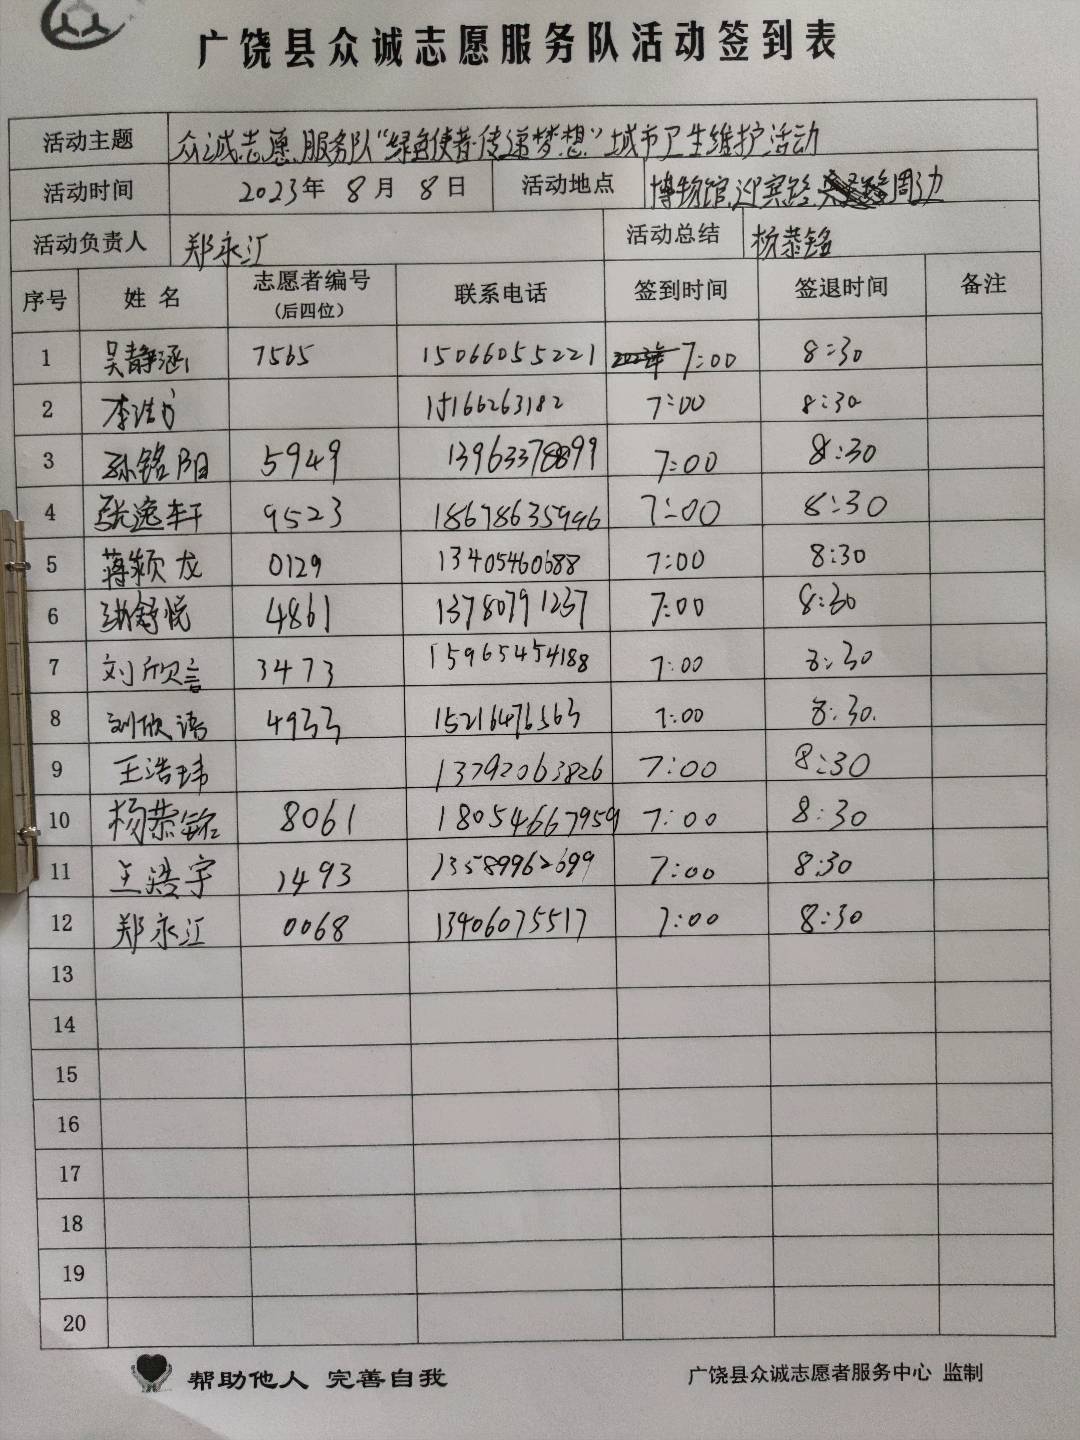 广饶县众诚志愿服务队活动签到表
活动主题 众诚志愿服务队“绿色使者·传递梦想”城市卫生维护活动
活动时间 2023年 8月 8日 活动地点 博物馆、迎宾路、周边
活动负责人 郑永江 活动总结 杨恭铭
序号 姓名 志愿者编号（后四位） 联系电话 签到时间 签退时间 备注
1 吴静涵 7565 15066055221 7:00 8:30
2 李浩 15166263182 7:00 8:30
3 孙铭阳 5949 13963378899 7:00 8:30
4 张逸轩 9523 18678635996 7:00 8:30
5 蒋颖龙 0129 13405460688 7:00 8:30
6 舒悦 4861 13780791237 7:00 8:30
7 刘欣言 3473 15965454188 7:00 8:30
8 刘欣语 4933 15216476563 7:00 8:30.
9 王浩玮 13792063826 7:00 8:30
10 杨恭铭 8061 18054667959 7:00 8:30
11 王浩宇 1493 13589962699 7:00 8:30
12 郑永江 0068 13406075517 7:00 8:30
13
14
15
16
17
18
19
20
帮助他人 完善自我 广饶县众诚志愿者服务中心 监制